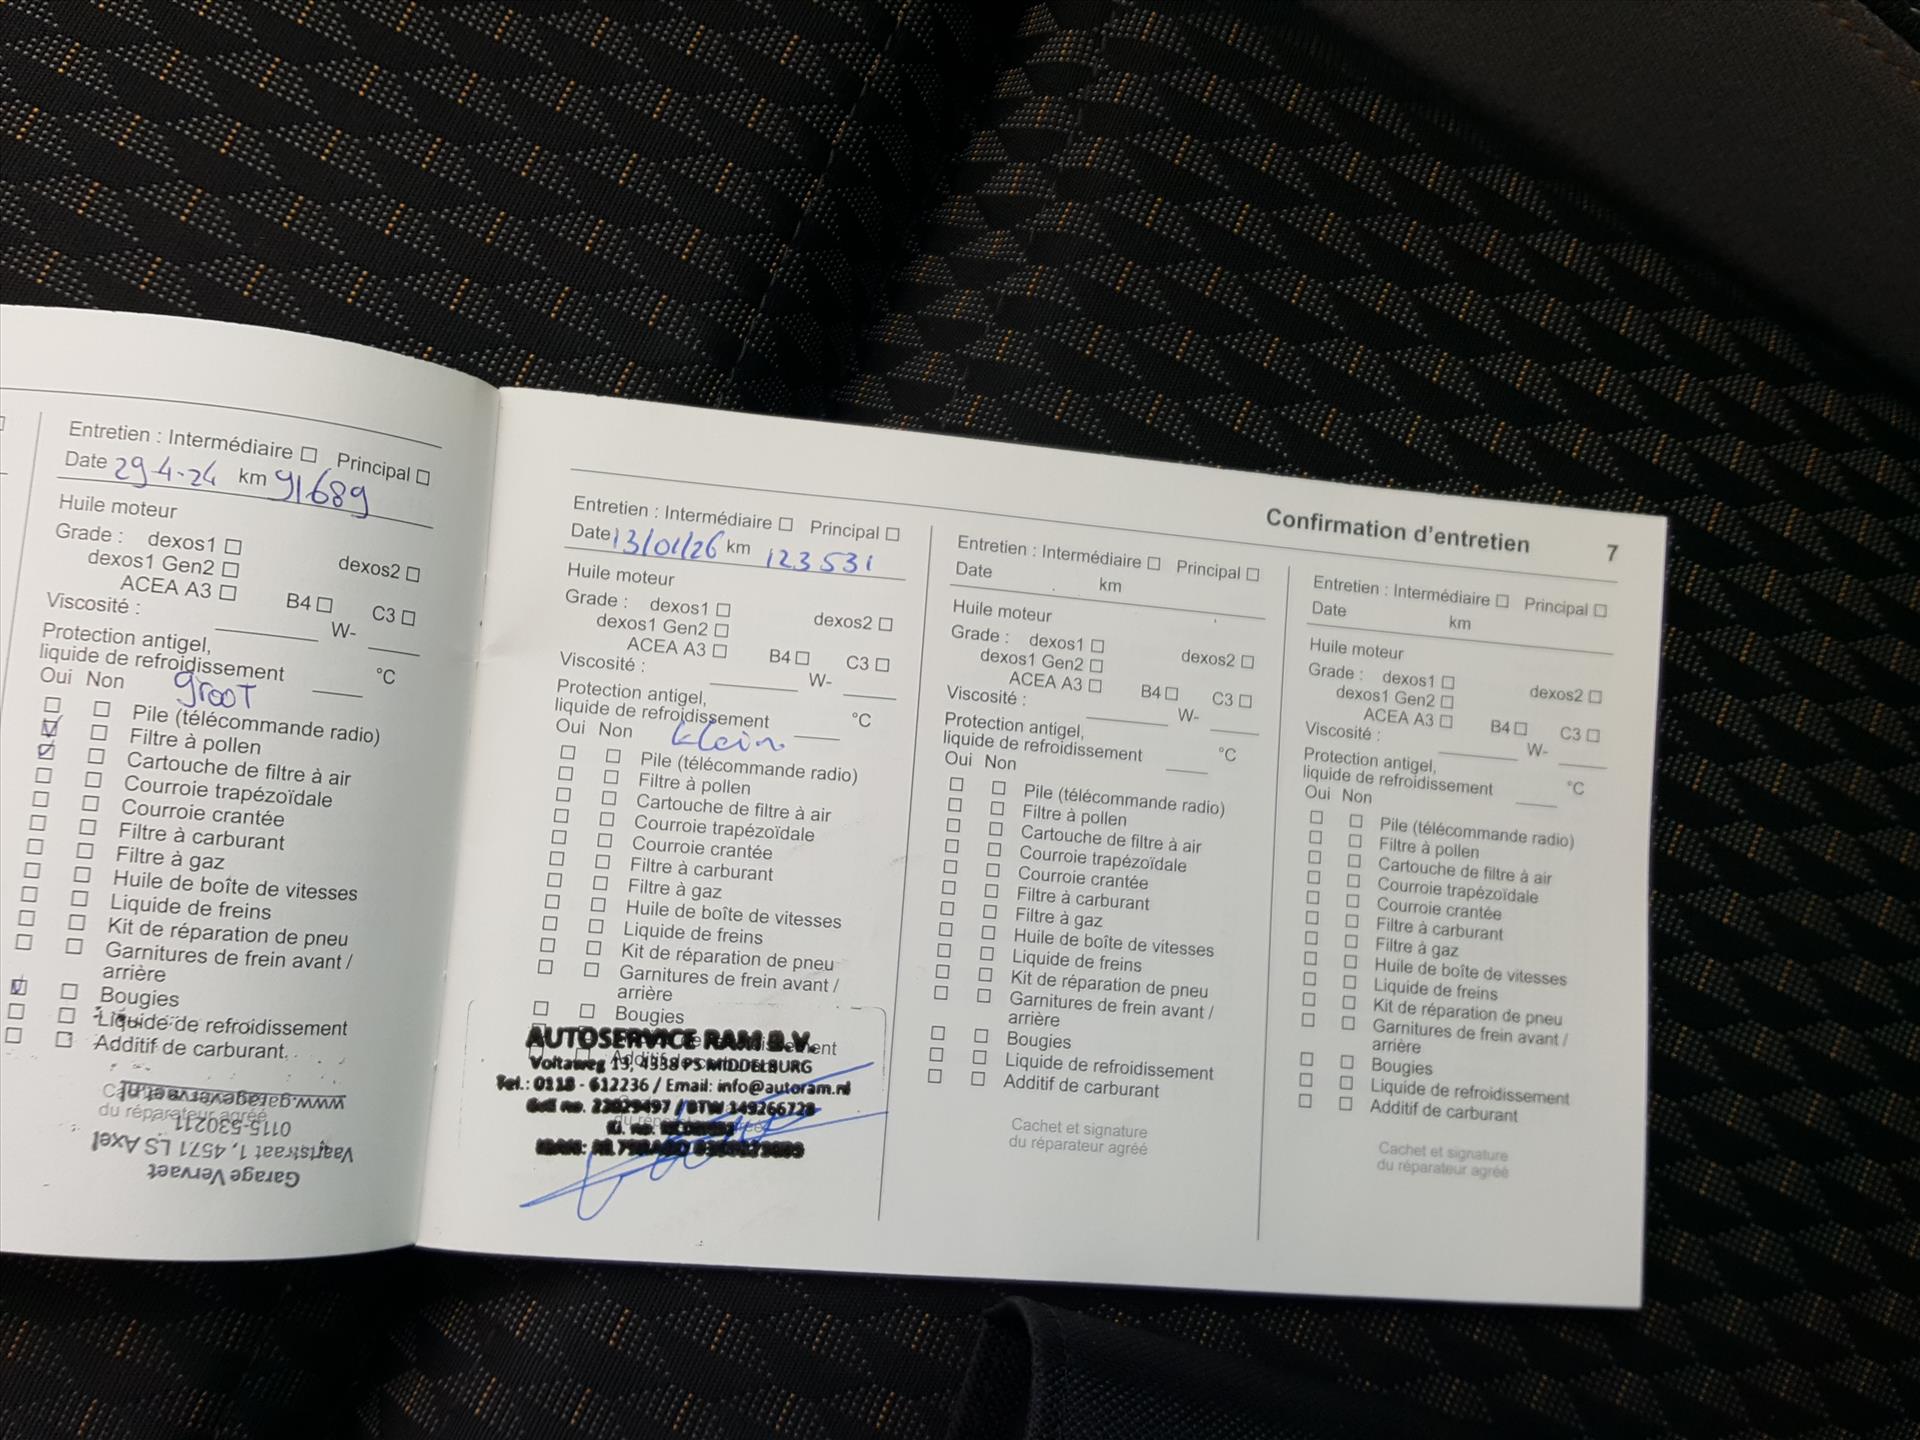 Entretien : Intermédiaire ☐ Principal ☐
Date 29-4-24 km 91689
Huile moteur
Grade : dexos1 ☐ dexos2 ☐
dexos1 Gen2 ☐
ACEA A3 ☐ B4 ☐ C3 ☐
Viscosité : ______ W- ____
Protection antigel,
liquide de refroidissement ____ °C
Oui Non groot
☐ ☐ Pile (télécommande radio)
☑ ☐ Filtre à pollen
☑ ☐ Cartouche de filtre à air
☐ ☐ Courroie trapézoïdale
☐ ☐ Courroie crantée
☐ ☐ Filtre à carburant
☐ ☐ Filtre à gaz
☐ ☐ Huile de boîte de vitesses
☐ ☐ Liquide de freins
☐ ☐ Kit de réparation de pneu
☐ ☐ Garnitures de frein avant /
arrière
☑ ☐ Bougies
☐ ☐ Liquide de refroidissement
☐ ☐ Additif de carburant
du réparateur agréé
Garage Vervaet
Vaartstraat 1, 4571 LS Axel
0115-530211
www.garagevervaet.nl
Confirmation d'entretien 7
Entretien : Intermédiaire ☐ Principal ☐
Date 13/01/26 km 123531
Huile moteur
Grade : dexos1 ☐ dexos2 ☐
dexos1 Gen2 ☐
ACEA A3 ☐ B4 ☐ C3 ☐
Viscosité : ______ W- ____
Protection antigel,
liquide de refroidissement ____ °C
Oui Non klein
☐ ☐ Pile (télécommande radio)
☐ ☐ Filtre à pollen
☐ ☐ Cartouche de filtre à air
☐ ☐ Courroie trapézoïdale
☐ ☐ Courroie crantée
☐ ☐ Filtre à carburant
☐ ☐ Filtre à gaz
☐ ☐ Huile de boîte de vitesses
☐ ☐ Liquide de freins
☐ ☐ Kit de réparation de pneu
☐ ☐ Garnitures de frein avant /
arrière
☐ ☐ Bougies
AUTOSERVICE RAM B.V.
Additif
Voltaweg 13, 4338 PS MIDDELBURG
Tel.: 0118 - 612236 / Email: info@autoram.nl
22029497 / BTW 149266728
IBAN:
Entretien : Intermédiaire ☐ Principal ☐
Date km
Huile moteur
Grade : dexos1 ☐ dexos2 ☐
dexos1 Gen2 ☐
ACEA A3 ☐ B4 ☐ C3 ☐
Viscosité : ______ W- ____
Protection antigel,
liquide de refroidissement ____ °C
Oui Non
☐ ☐ Pile (télécommande radio)
☐ ☐ Filtre à pollen
☐ ☐ Cartouche de filtre à air
☐ ☐ Courroie trapézoïdale
☐ ☐ Courroie crantée
☐ ☐ Filtre à carburant
☐ ☐ Filtre à gaz
☐ ☐ Huile de boîte de vitesses
☐ ☐ Liquide de freins
☐ ☐ Kit de réparation de pneu
☐ ☐ Garnitures de frein avant /
arrière
☐ ☐ Bougies
☐ ☐ Liquide de refroidissement
☐ ☐ Additif de carburant
Cachet et signature
du réparateur agréé
Entretien : Intermédiaire ☐ Principal ☐
Date km
Huile moteur
Grade : dexos1 ☐ dexos2 ☐
dexos1 Gen2 ☐
ACEA A3 ☐ B4 ☐ C3 ☐
Viscosité : ______ W- ____
Protection antigel,
liquide de refroidissement ____ °C
Oui Non
☐ ☐ Pile (télécommande radio)
☐ ☐ Filtre à pollen
☐ ☐ Cartouche de filtre à air
☐ ☐ Courroie trapézoïdale
☐ ☐ Courroie crantée
☐ ☐ Filtre à carburant
☐ ☐ Filtre à gaz
☐ ☐ Huile de boîte de vitesses
☐ ☐ Liquide de freins
☐ ☐ Kit de réparation de pneu
☐ ☐ Garnitures de frein avant /
arrière
☐ ☐ Bougies
☐ ☐ Liquide de refroidissement
☐ ☐ Additif de carburant
Cachet et signature
du réparateur agréé